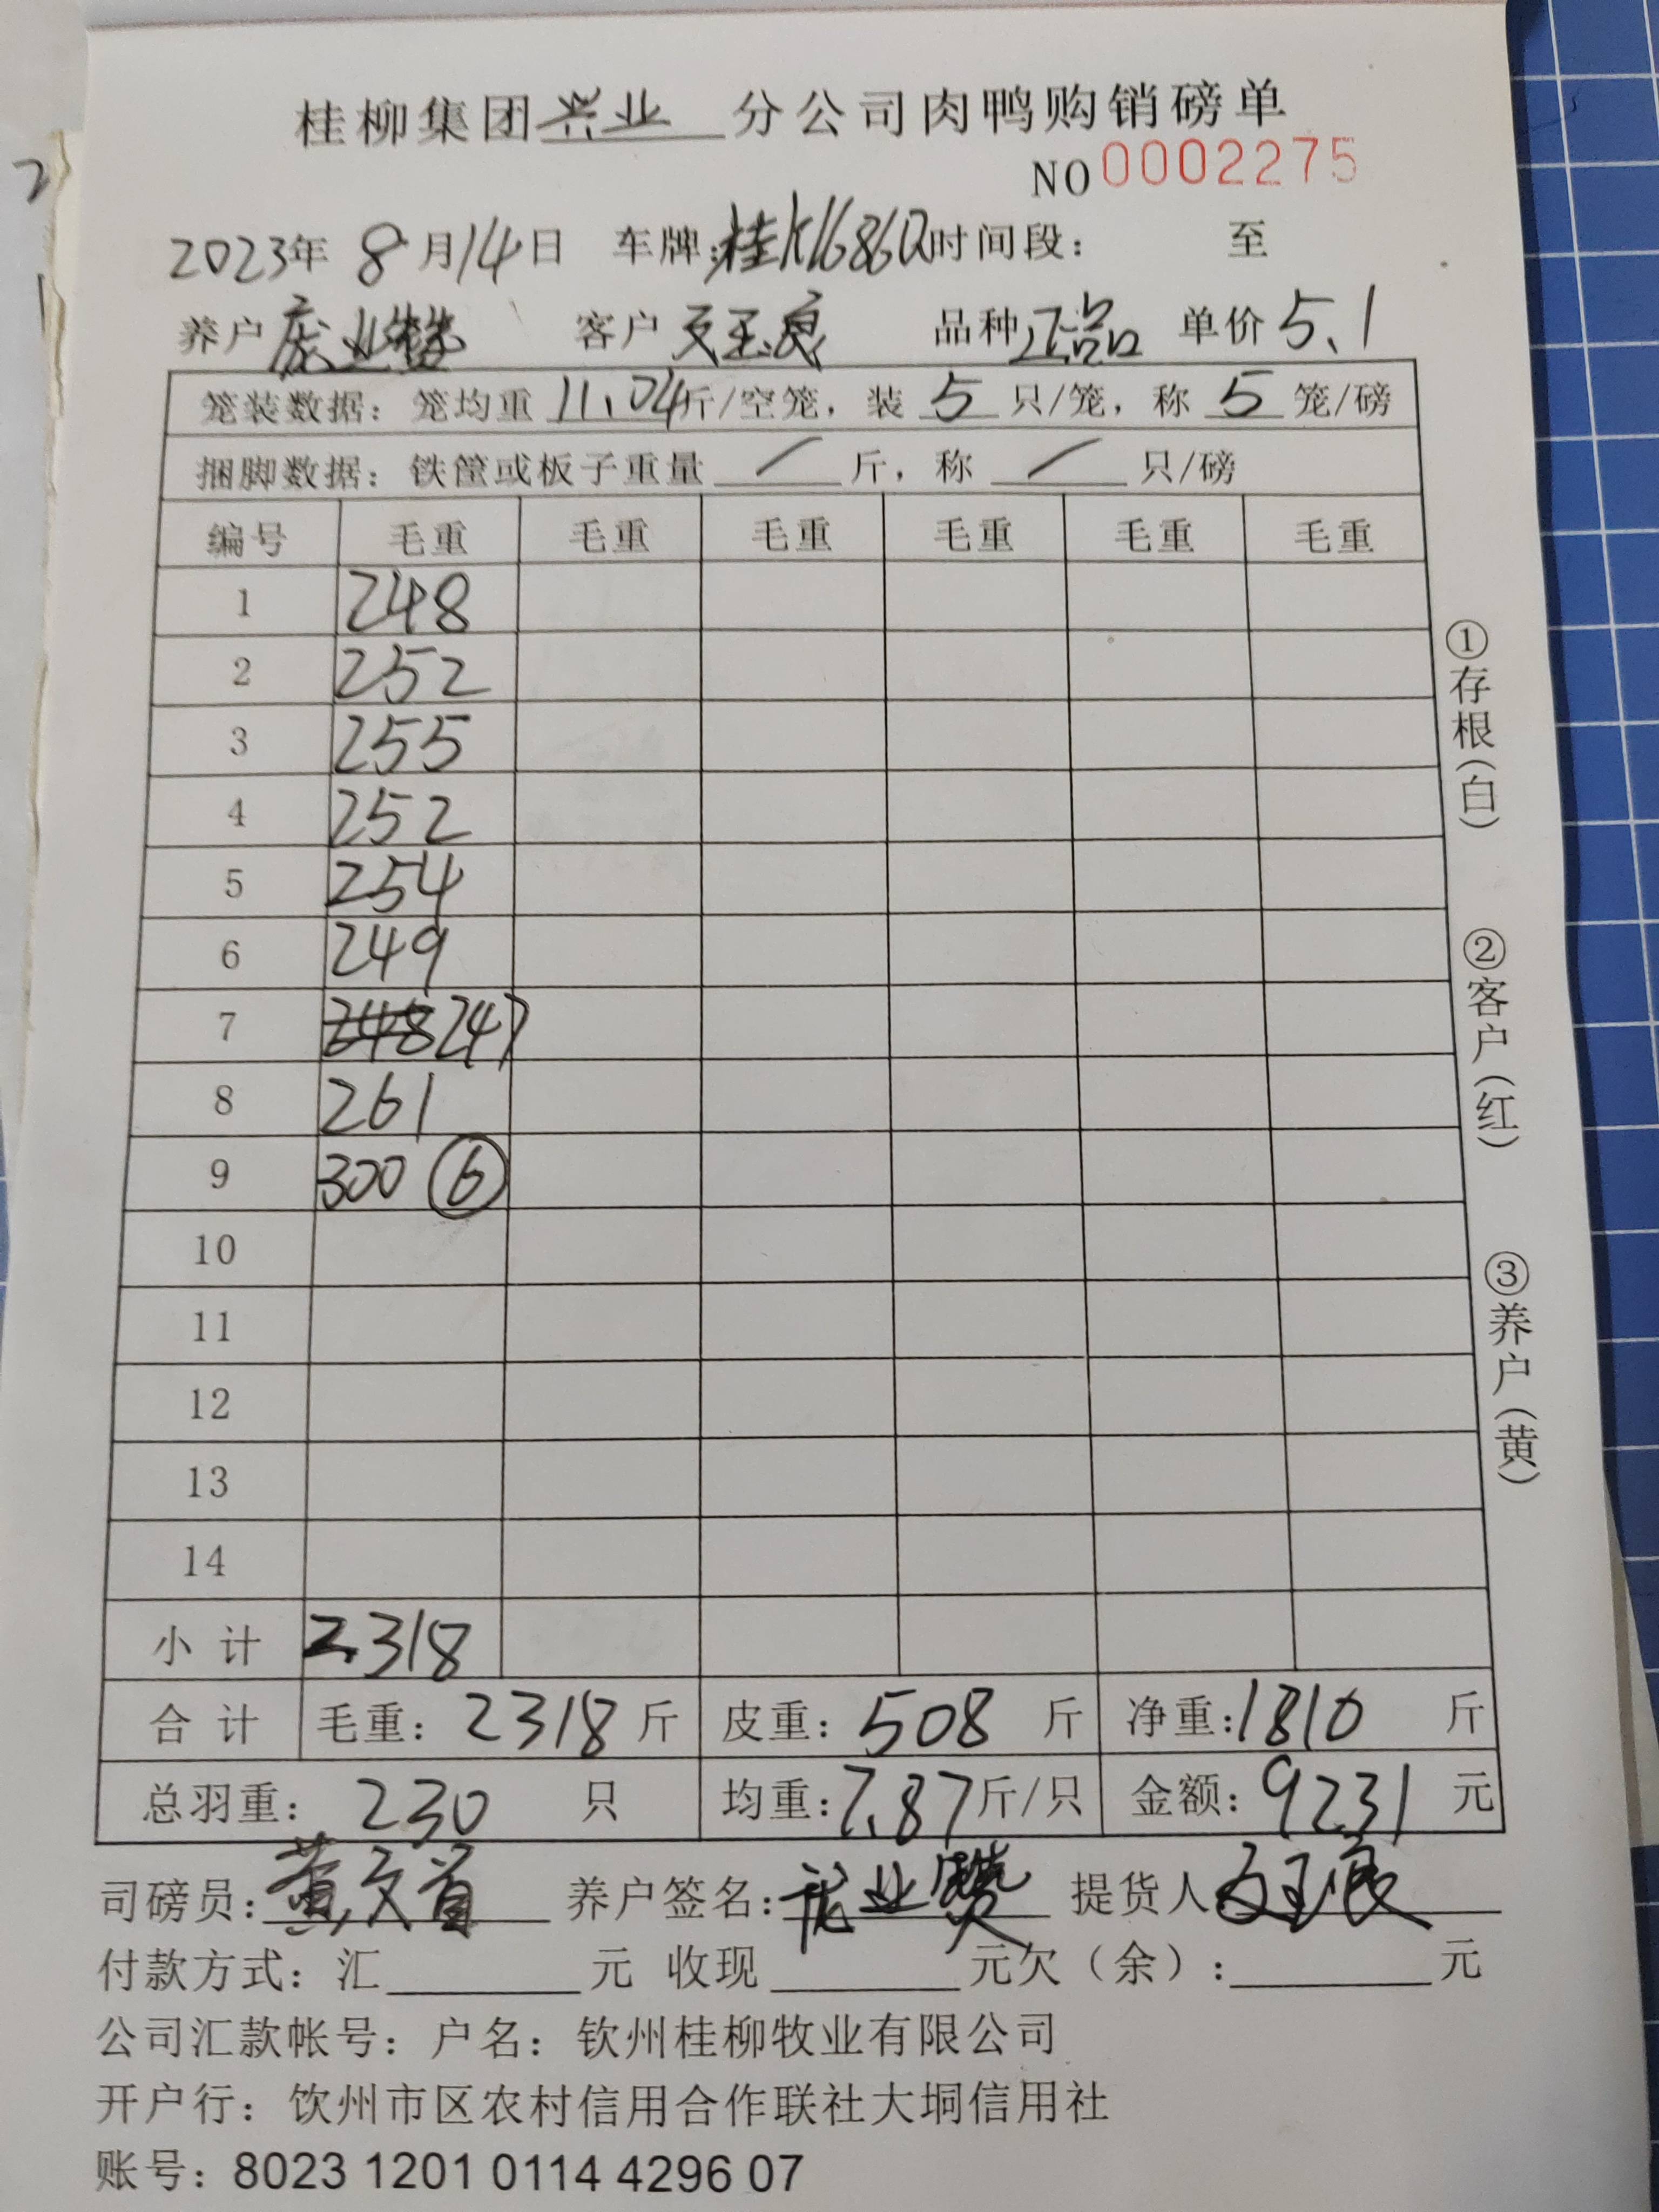 桂柳集团兴业分公司肉鸭购销磅单
NO 0002275
2023年 8月14日 车牌:桂K16860时间段: 至
养户 庞业赞 客户 文玉良 品种 正品 单价 5.1
笼装数据: 笼均重 11.04斤/空笼, 装 5 只/笼, 称 5 笼/磅
捆脚数据: 铁筐或板子重量 / 斤, 称 / 只/磅
编号 毛重 毛重 毛重 毛重 毛重 毛重
1 248
2 252
3 255
4 252
5 254
6 249
7 248 247
8 261
9 300 ⑥
10
11
12
13
14
小计 2318
合计 毛重: 2318 斤 皮重: 508 斤 净重: 1810 斤
总羽重: 230 只 均重: 7.87斤/只 金额: 9231 元
司磅员: 黄文首 养户签名: 庞业赞 提货人 文玉良
付款方式: 汇 元 收现 元欠(余): 元
公司汇款帐号: 户名: 钦州桂柳牧业有限公司
开户行: 钦州市区农村信用合作联社大垌信用社
账号: 8023 1201 0114 4296 07
①存根(白)
②客户(红)
③养户(黄)